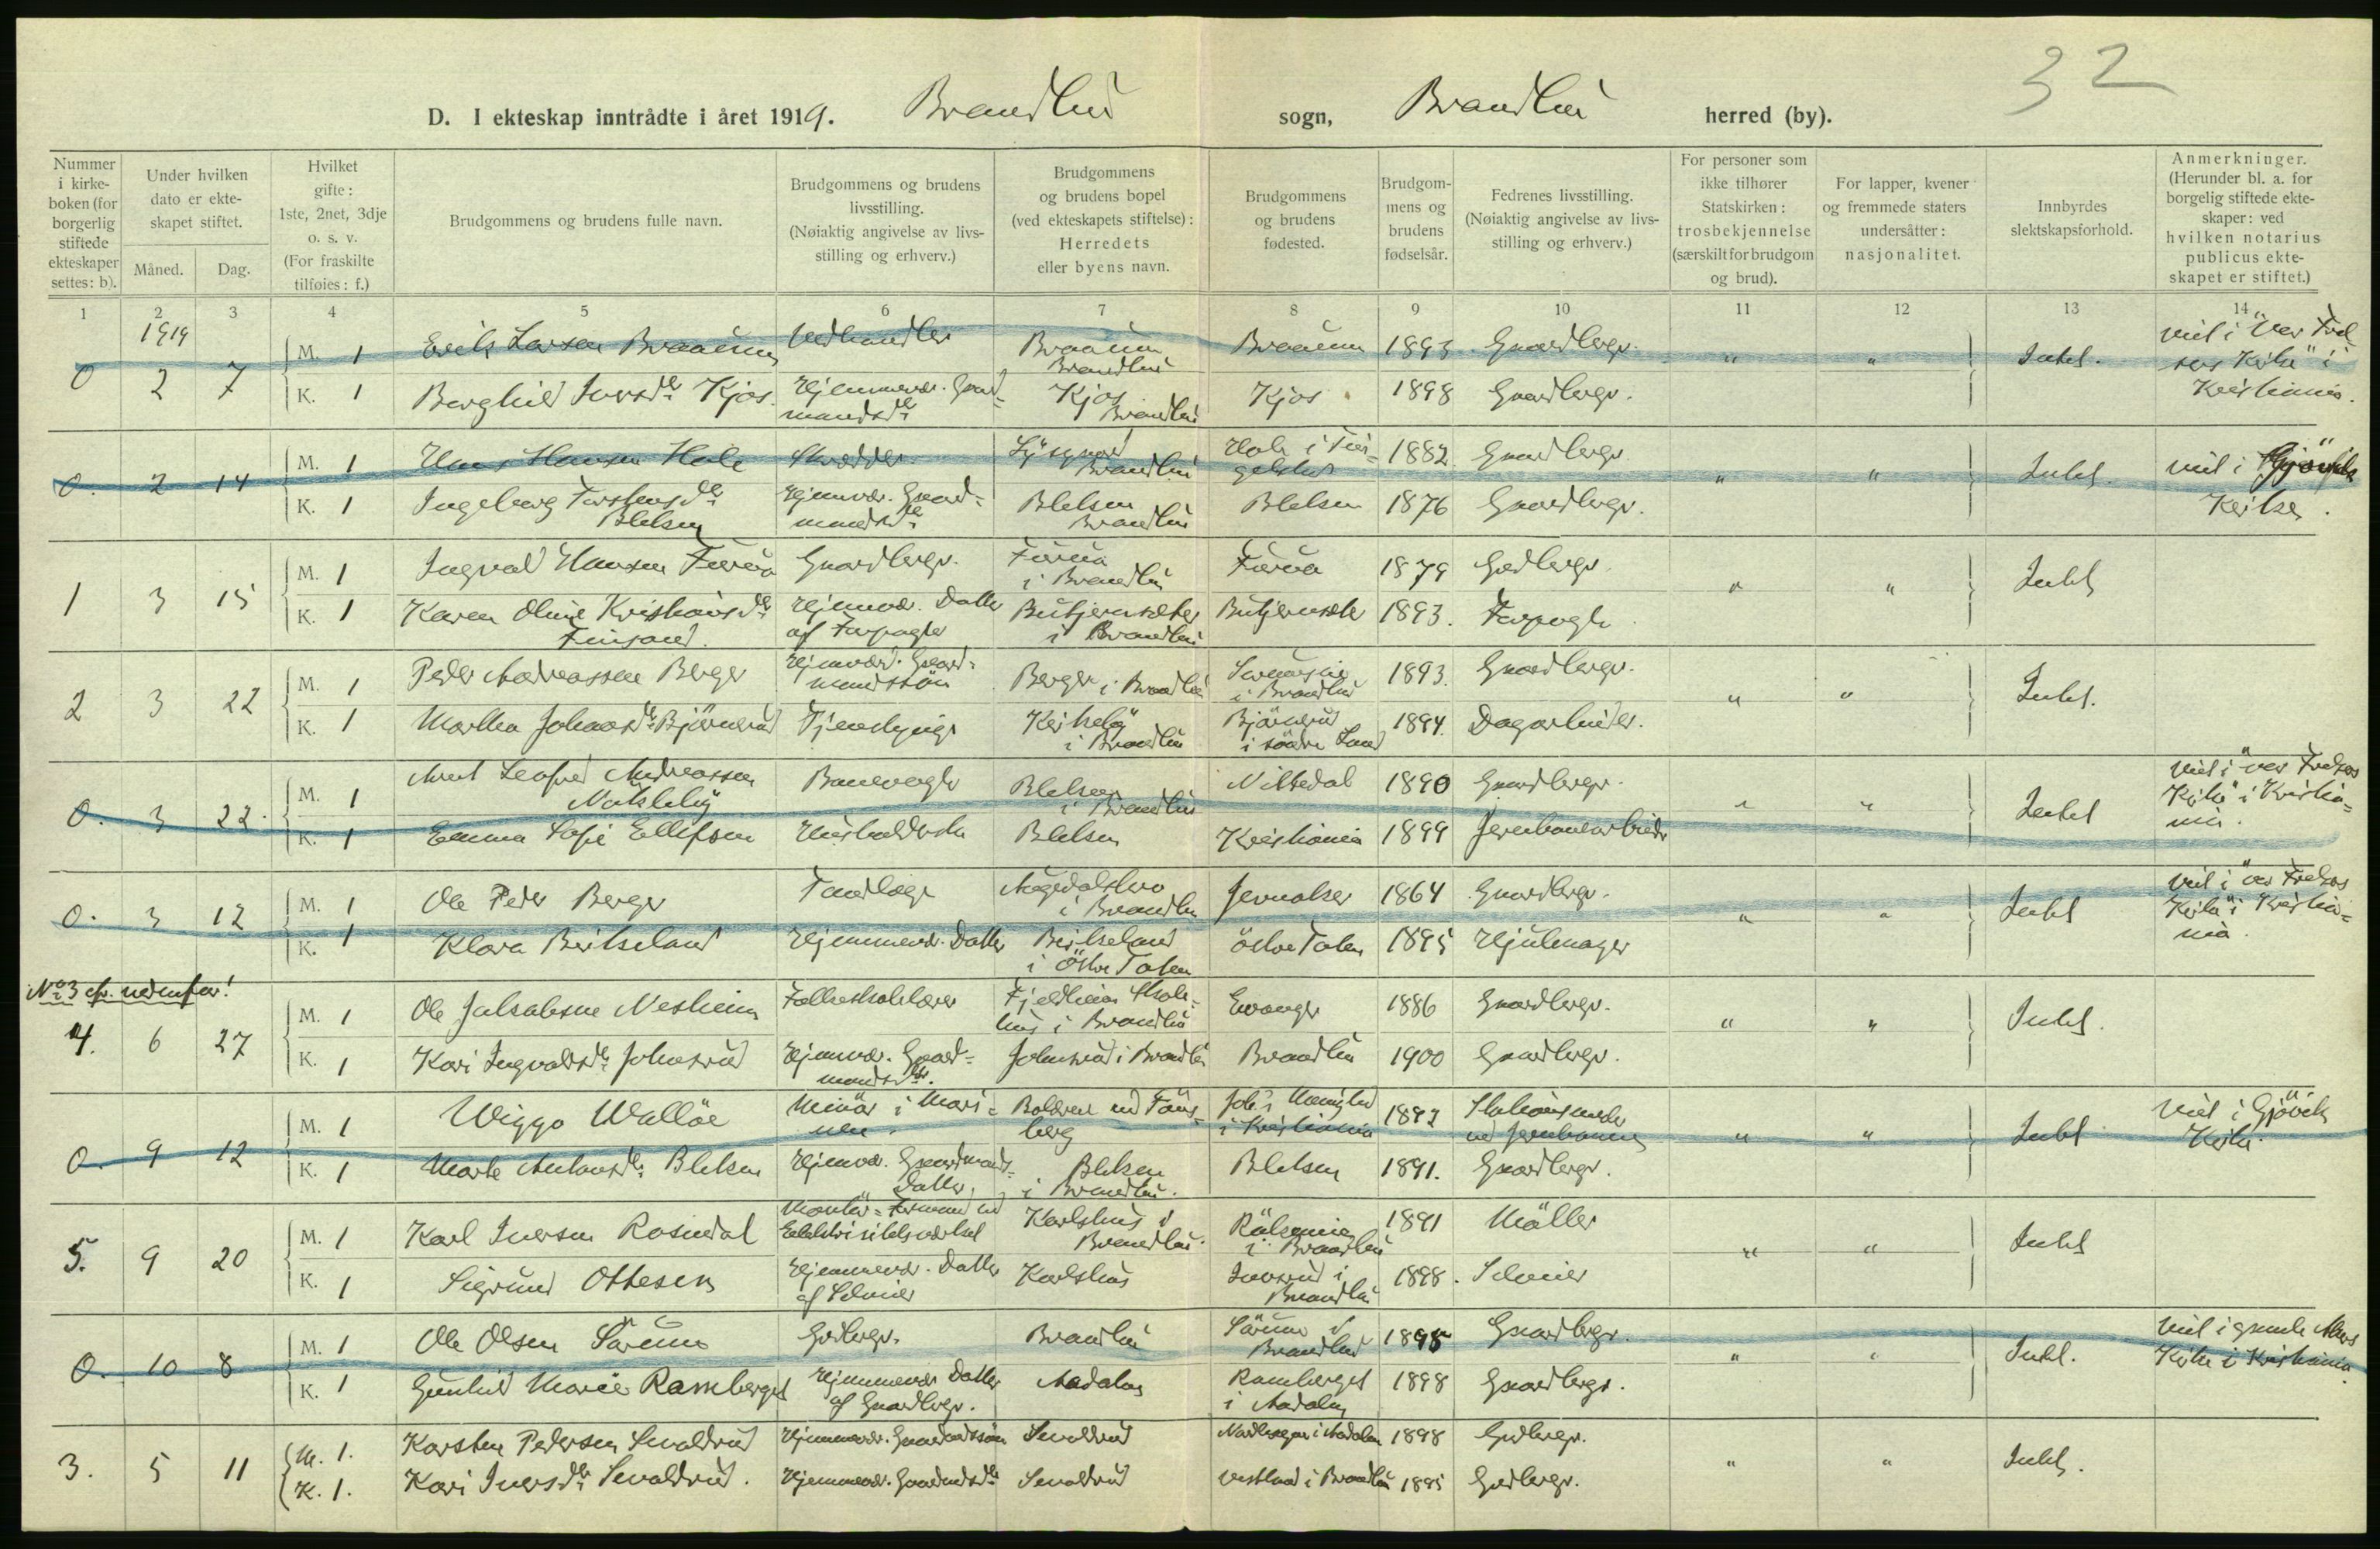 32
D. I ekteskap inntrådte i året 1919. Brandbu sogn, Brandbu herred (by).
Nummer i kirke-boken (for borgerlig stiftede ekteskaper settes: b).
Under hvilken dato er ekte-skapet stiftet.
Måned. Dag.
Hvilket gifte: 1ste, 2net, 3dje o. s. v. (For fraskilte tilføies: f.)
Brudgommens og brudens fulle navn.
Brudgommens og brudens livsstilling. (Nøiaktig angivelse av livs-stilling og erhverv.)
Brudgommens og brudens bopel (ved ekteskapets stiftelse): Herredets eller byens navn.
Brudgommens og brudens fødested.
Brudgom-mens og brudens fødselsår.
Fedrenes livsstilling. (Nøiaktig angivelse av livs-stilling og erhverv.)
For personer som ikke tilhører Statskirken: trosbekjennelse (særskilt for brudgom og brud).
For lapper, kvener og fremmede staters undersåtter: nasjonalitet.
Innbyrdes slektskapsforhold.
Anmerkninger. (Herunder bl. a. for borgelig stiftede ekte-skaper: ved hvilken notarius publicus ekte-skapet er stiftet.)
1 2 3 4 5 6 7 8 9 10 11 12 13 14
1919
0 2 7 M. 1 Erik Larsen Braaum Vedhandler Braaum Brandbu Braaum 1893 Gaardbrgr. " " Intet. viet i "Vor Frel
sers Kirke" i
K. 1 Borghild Iversdtr Kjos Hjemmevær. Gaard=
mandsdtr Kjos Brandbu Kjos 1898 Gaardbrgr. Kristiania.
0. 2 14 M. 1 Hans Hansen Hole Skrædder. Brandbu Hole i 1882 Gaardbrgr. " " Intet. viet i Gjøviks
K. 1 Ingeborg Torstensdtr
Blelsen Hjemvær. Gaard=
mandsdtr Blelsen
Brandbu Blelsen 1876 Gaardbrgr. Kirke.
1 3 15 M. 1 Ingvald Hansen Gaardbrgr. i Brandbu 1879 Gdbrgr. " " Intet
K. 1 Karen Oline Kristiansdtr Hjemvær. Datter
af i Brandbu 1893.
2 3 22 M. 1 Peder Andreassen Berger Hjemvær. Gaard=
mandssøn Berger i Brandbu i Brandbu 1893. Gaardbrgr. " " Intet.
K. 1 Marthea Johansdtr Bjørnerud Tjenestepige i Brandbu Bjørnerud
i søndre Land 1894. Dagarbeider.
0. 3 22. M. 1 Andreassen Banevogter Blelsen
i Brandbu Nittedal 1890 Gaardbrgr. " " Intet viet i "vor Frelsers
Kirke" i Kristia=
nia.
K. 1 Emma Sofie Ellefsen Blelsen Kristiania 1899 Jernbanearbeider
0. 3 12 M. 1 Ole Peder Berger Tandlæge Augedalsbro
i Brandbu Jevnaker 1864 Gaardbrgr. " " Intet viet i "vor Frelsers
Kirke" i Kristia=
nia.
K. 1 Klara Birkeland Hjemmevær. Datter Birkeland
i Østre Toten østre Toten 1895 Hjulmager
No 3 cfr. nedenfor!
4. 6 27 M. 1 Ole Nesheim Folkeskolelærer Fjeldheim Skole=
hus i Brandbu Evanger 1886 Gaardbrgr. " " Intet.
K. 1 Kari Ingvaldsdtr Johnsrud Hjemvær. Gaard=
mandsdtr. Johnsrud i Brandbu Brandbu 1900 Gaardbrgr.
0. 9 12 M. 1 Wiggo Walløe Minør i Mari=
nen. Bolærne ved Tøns=
berg i Kristiania 1892 Stationsmester
ved Jernbanen " " Intet Viet i Gjøvik
Kirke.
K. 1 Marte Antonsdtr Blelsen Hjemvær. Gaardmands=
Datter. Blelsen
i Brandbu. Blelsen 1891. Gaardbrgr.
5. 9 20 M. 1 Karl Iversen Rosendal Montør=Formand ved
Elektricitetsværket Karlshus i
Brandbu. i Brandbu 1891 Møller " " Intet
K. 1 Sigrund Ottesen Hjemmevær. Datter
af Karlshus i
Brandbu 1898.
0. 10 8 M. 1 Ole Olsen Sørum Gdbrgr. Brandbu Sørum i
Brandbu 1895 Gaardbrgr. " " Intet. viet i gamle Akers
Kirke i Kristiania.
K. 1 Gunhild Marie Ramberget Hjemmevær Datter
af Gaardbrgr. Aadalen Ramberget
i Aadalen 1898 Gaardbrgr.
3. 5 11 M. 1. Karsten Pedersen Sevaldrud Hjemmevær. Sevaldrud i Aadalen 1898 Gdbrgr. " " Intet.
K. 1. Kari Iversdtr Sevaldrud. Hjemmevær. Sevaldrud i Brandbu 1895 Gdbrgr.